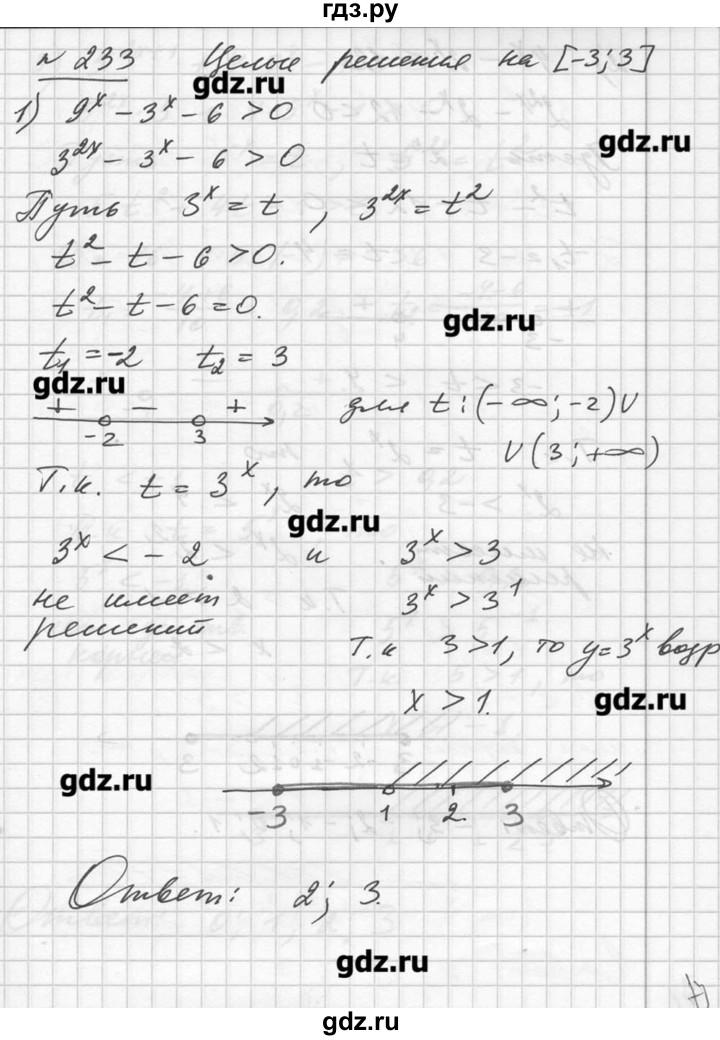 гдз.ру
№ 233 Целые решения на [-3; 3]
gdz.ru
1) 9ˣ - 3ˣ - 6 > 0
gdz.ru
3²ˣ - 3ˣ - 6 > 0
Путь 3ˣ = t, 3²ˣ = t²
t² - t - 6 > 0.
t² - t - 6 = 0.
gdz.ru
t₁ = -2 t₂ = 3
gdz.ru
+ - +
-2 3
для t: (-∞; -2) ∪
∪ (3; +∞)
Т.к. t = 3ˣ, то
gdz.ru
3ˣ < -2 и 3ˣ > 3
не имеет 3ˣ > 3¹
решений
Т.к 3 > 1, то y = 3ˣ возр
x > 1.
gdz.ru
gdz.ru
-3 1 2 3
Ответ: 2; 3.
gdz.ru
gdz.ru